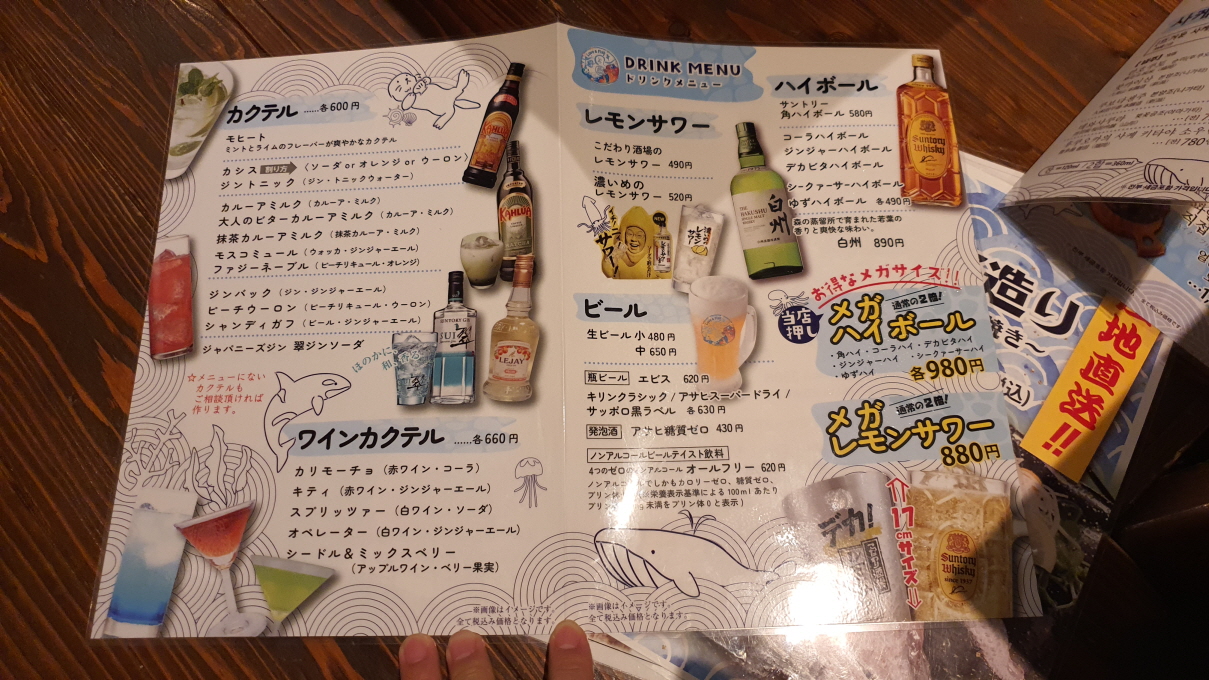 カクテル ……各600円
モヒート
ミントとライムのフレーバーが爽やかなカクテル
カシス 割り方 (ソーダ or オレンジ or ウーロン)
ジントニック (ジン・トニックウォーター)
カルーアミルク (カルーア・ミルク)
大人のビターカルーアミルク (カルーア・ミルク)
抹茶カルーアミルク (抹茶カルーア・ミルク)
モスコミュール (ウォッカ・ジンジャーエール)
ファジーネーブル (ピーチリキュール・オレンジ)
ジンバック (ジン・ジンジャーエール)
ピーチウーロン (ピーチリキュール・ウーロン)
シャンディガフ (ビール・ジンジャーエール)
ジャパニーズジン 翠ジンソーダ
ほのかに
☆メニューにない
カクテルも
ご相談頂ければ
作ります。
KAHLUA
KAHLUA
SUNTORY GIN
翠
LEJAY
ワインカクテル ……各660円
カリモーチョ (赤ワイン・コーラ)
キティ (赤ワイン・ジンジャーエール)
スプリッツァー (白ワイン・ソーダ)
オペレーター (白ワイン・ジンジャーエール)
シードル&ミックスベリー
(アップルワイン・ベリー果実)
※画像はイメージです。
全て税込み価格となります。
DRINK MENU
ドリンクメニュー
レモンサワー
こだわり酒場の
レモンサワー 490円
濃いめの
レモンサワー 520円
サワー!
NEW
レモンサワー
ビール
生ビール 小 480円
中 650円
瓶ビール ヱビス 620円
キリンクラシック / アサヒスーパードライ /
サッポロ黒ラベル 各630円
発泡酒 アサヒ糖質ゼロ 430円
ノンアルコールビールテイスト飲料
4つのゼロのノンアルコール オールフリー 620円
ノンアルコールでしかもカロリーゼロ、糖質ゼロ、
プリン体
栄養表示基準による100mlあたり
プリン
未満をプリン体0と表示)
※画像はイメージです。
全て税込み価格となります。
ハイボール
サントリー
角ハイボール 580円
コーラハイボール
ジンジャーハイボール
デカビタハイボール
シークァーサーハイボール
ゆずハイボール 各490円
森の蒸留所で育まれた若葉の
香りと爽快な味わい。
白州 890円
THE
HAKUSHU
白州
Suntory
Whisky
お得なメガサイズ!!
当店
押し
メガ 通常の2倍!
ハイボール
・角ハイ・コーラハイ・デカビタハイ
・ジンジャーハイ ・シークァーサーハイ
・ゆずハイ
各980円
メガ 通常の2倍!
レモンサワー
880円
デカ!
17
cm
サイズ
Suntory
Whisky
since 1937
造り
焼き~
込)
地直送!!